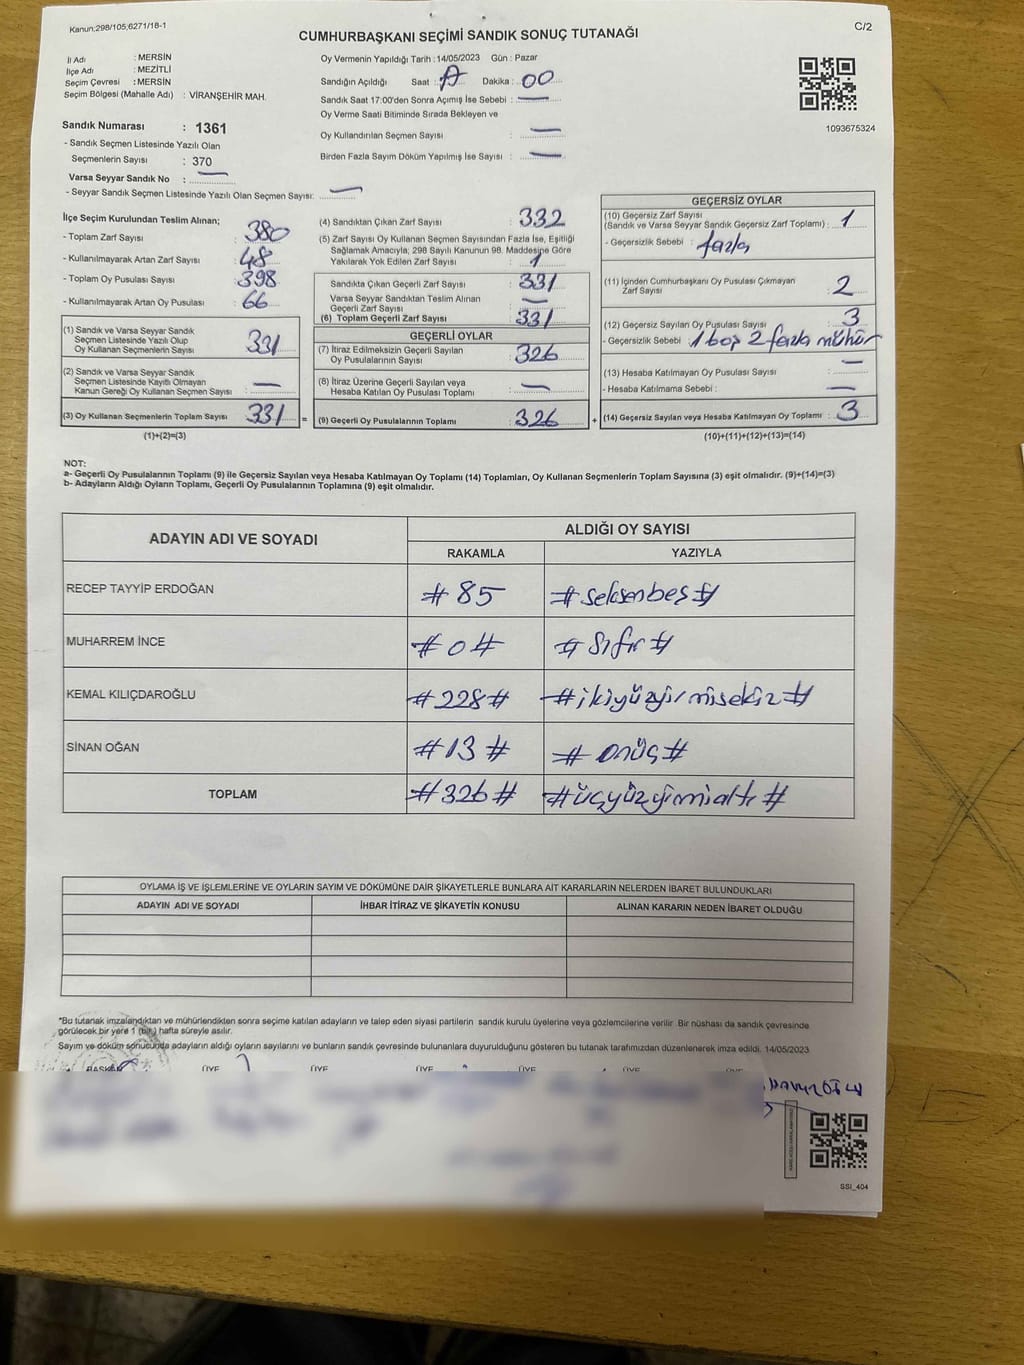 Kanun:298/105,6271/18-1
CUMHURBAŞKANI SEÇİMİ SANDIK SONUÇ TUTANAĞI
C/2
İl Adı : MERSİN
İlçe Adı : MEZİTLİ
Seçim Çevresi : MERSİN
Seçim Bölgesi (Mahalle Adı) : VİRANŞEHİR MAH.
Oy Vermenin Yapıldığı Tarih : 14/05/2023 Gün : Pazar
Sandığın Açıldığı Saat : Dakika : 00
Sandık Saat 17:00'den Sonra Açımış İse Sebebi : —
Oy Verme Saati Bitiminde Sırada Bekleyen ve
Oy Kullandırılan Seçmen Sayısı : —
Birden Fazla Sayım Döküm Yapılmış İse Sayısı : —
1093675324
Sandık Numarası : 1361
- Sandık Seçmen Listesinde Yazılı Olan
Seçmenlerin Sayısı : 370
Varsa Seyyar Sandık No : —
- Seyyar Sandık Seçmen Listesinde Yazılı Olan Seçmen Sayısı: —
İlçe Seçim Kurulundan Teslim Alınan;
- Toplam Zarf Sayısı : 380
- Kullanılmayarak Artan Zarf Sayısı : 48
- Toplam Oy Pusulası Sayısı : 398
- Kullanılmayarak Artan Oy Pusulası : 66
(1) Sandık ve Varsa Seyyar Sandık
Seçmen Listesinde Yazılı Olup
Oy Kullanan Seçmenlerin Sayısı : 331
(2) Sandık ve Varsa Seyyar Sandık
Seçmen Listesinde Kayıtlı Olmayan
Kanun Gereği Oy Kullanan Seçmen Sayısı : —
(3) Oy Kullanan Seçmenlerin Toplam Sayısı : 331 =
(1)+(2)=(3)
(4) Sandıktan Çıkan Zarf Sayısı : 332
(5) Zarf Sayısı Oy Kullanan Seçmen Sayısından Fazla İse, Eşitliği
Sağlamak Amacıyla; 298 Sayılı Kanunun 98. Maddesine Göre
Yakılarak Yok Edilen Zarf Sayısı : 1
Sandıkta Çıkan Geçerli Zarf Sayısı : 331
Varsa Seyyar Sandıktan Teslim Alınan
Geçerli Zarf Sayısı : —
(6) Toplam Geçerli Zarf Sayısı : 331
GEÇERLİ OYLAR
(7) İtiraz Edilmeksizin Geçerli Sayılan
Oy Pusulalarının Sayısı : 326
(8) İtiraz Üzerine Geçerli Sayılan veya
Hesaba Katılan Oy Pusulaları Toplamı : —
(9) Geçerli Oy Pusulalarının Toplamı : 326 +
GEÇERSİZ OYLAR
(10) Geçersiz Zarf Sayısı
(Sandık ve Varsa Seyyar Sandık Geçersiz Zarf Toplamı) : 1
- Geçersizlik Sebebi : fazla
(11) İçinden Cumhurbaşkanı Oy Pusulası Çıkmayan
Zarf Sayısı : 2
(12) Geçersiz Sayılan Oy Pusulası Sayısı : 3
- Geçersizlik Sebebi : 1 boş 2 fazla mühür
(13) Hesaba Katılmayan Oy Pusulası Sayısı : —
- Hesaba Katılmama Sebebi : —
(14) Geçersiz Sayılan veya Hesaba Katılmayan Oy Toplamı : 3
(10)+(11)+(12)+(13)=(14)
NOT:
a- Geçerli Oy Pusulalarının Toplamı (9) ile Geçersiz Sayılan veya Hesaba Katılmayan Oy Toplamı (14) Toplamları, Oy Kullanan Seçmenlerin Toplam Sayısına (3) eşit olmalıdır. (9)+(14)=(3)
b- Adayların Aldığı Oyların Toplamı, Geçerli Oy Pusulalarının Toplamına (9) eşit olmalıdır.
ADAYIN ADI VE SOYADI
ALDIĞI OY SAYISI
RAKAMLA YAZIYLA
RECEP TAYYİP ERDOĞAN #85 #seksenbeş#
MUHARREM İNCE #0# #sıfır#
KEMAL KILIÇDAROĞLU #228# #ikiyüzyirmisekiz#
SİNAN OĞAN #13# #onüç#
TOPLAM #326# #üçyüzyirmialtı#
OYLAMA İŞ VE İŞLEMLERİNE VE OYLARIN SAYIM VE DÖKÜMÜNE DAİR ŞİKAYETLERLE BUNLARA AİT KARARLARIN NELERDEN İBARET BULUNDUKLARI
ADAYIN ADI VE SOYADI İHBAR İTİRAZ VE ŞİKAYETİN KONUSU ALINAN KARARIN NEDEN İBARET OLDUĞU
"Bu tutanak imzalandıktan ve mühürlendikten sonra seçime katılan adayların ve talep eden siyasi partilerin sandık kurulu üyelerine veya gözlemcilerine verilir. Bir nüshası da sandık çevresinde
görülecek bir yere 1 (bir) hafta süreyle asılır.
Sayım ve döküm sonucunda adayların aldığı oyların sayılarını ve bunların sandık çevresinde bulunanlara duyurulduğunu gösteren bu tutanak tarafımızdan düzenlenerek imza edildi. 14/05/2023
BAŞKAN ÜYE ÜYE ÜYE ÜYE ÜYE ÜYE
SSI_404